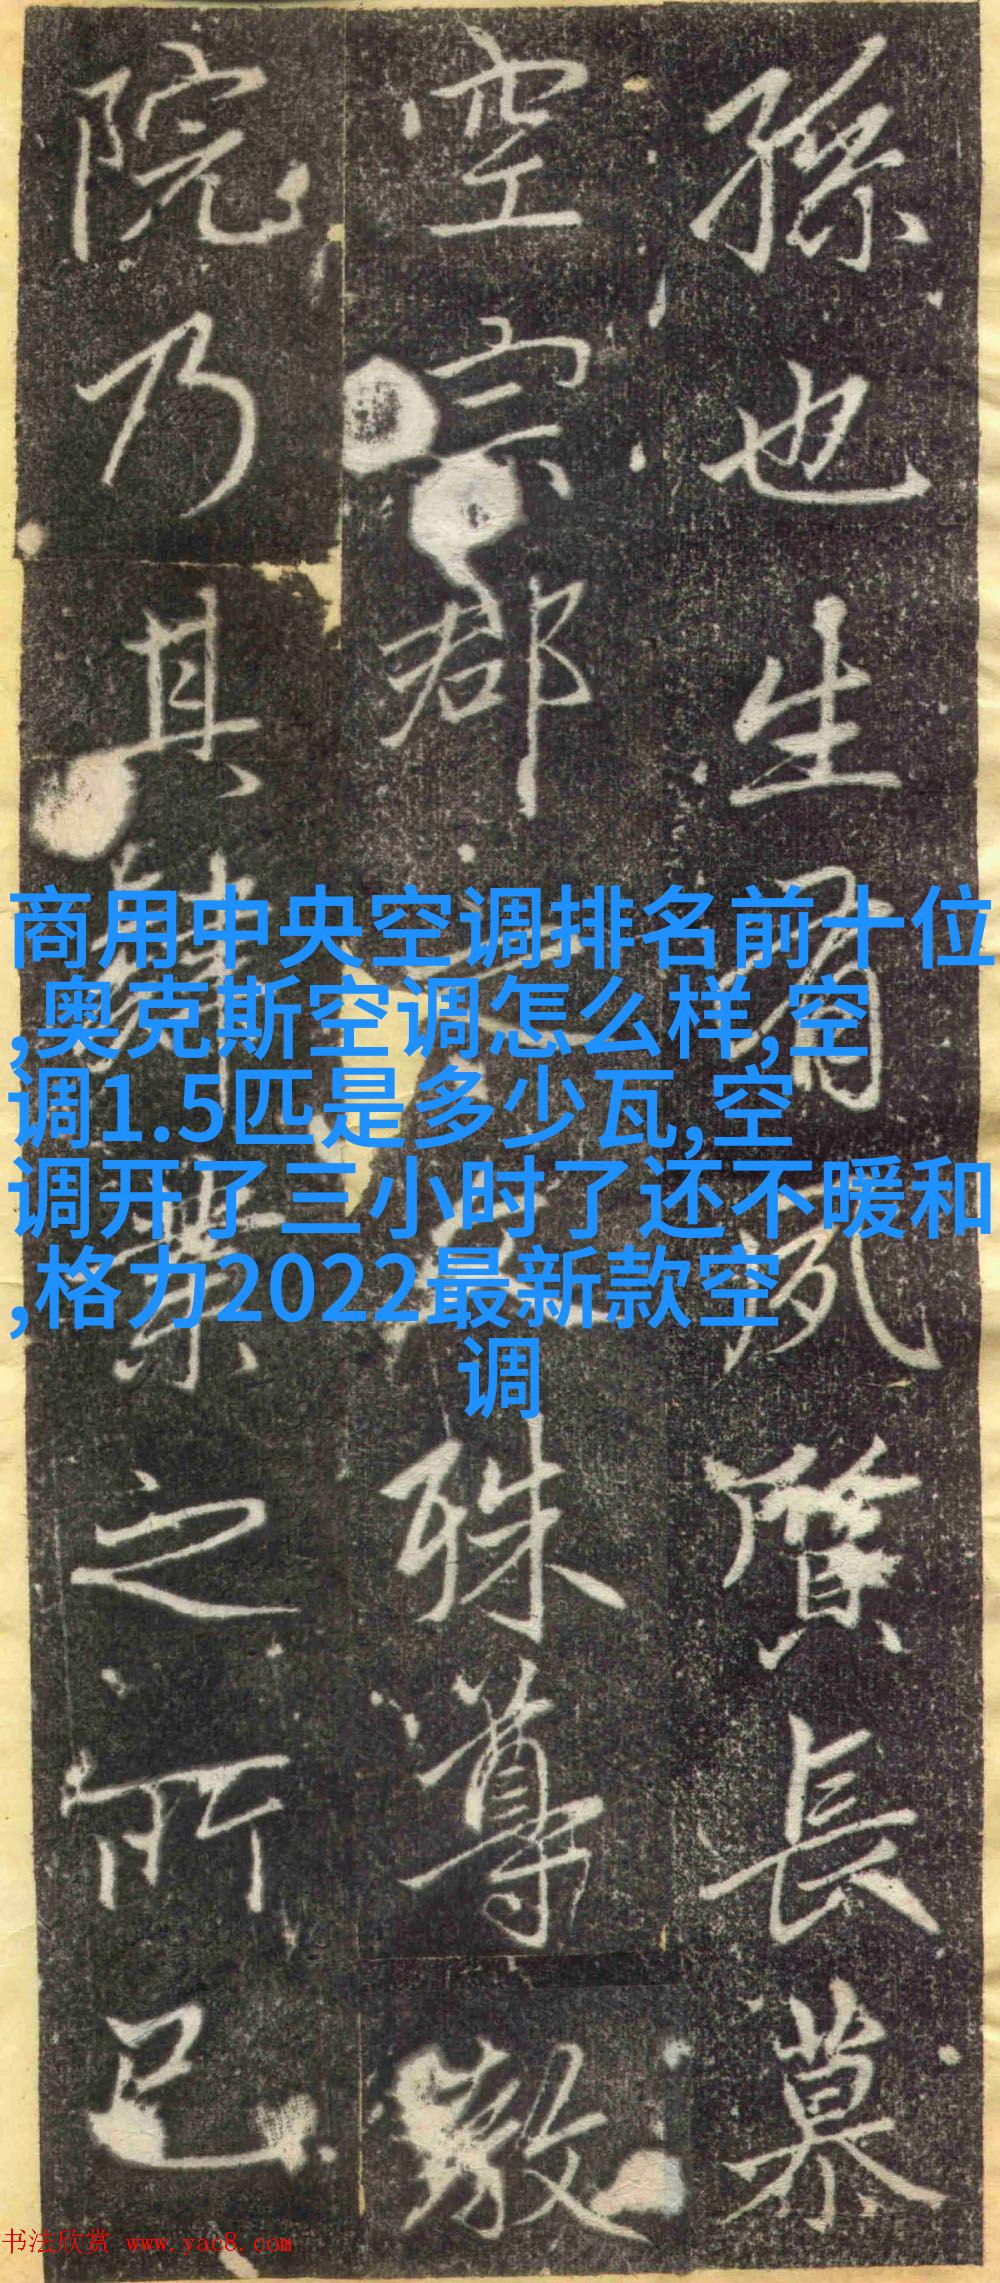 孫也生有夙質長慕
空宗郡殊尊敬
院乃其肄業之所已
商用中央空调排名前十位
,奥克斯空调怎么样,空
调1.5匹是多少瓦,空
调开了三小时了还不暖和
,格力2022最新款空
调
书法欣赏 www.yac8.com